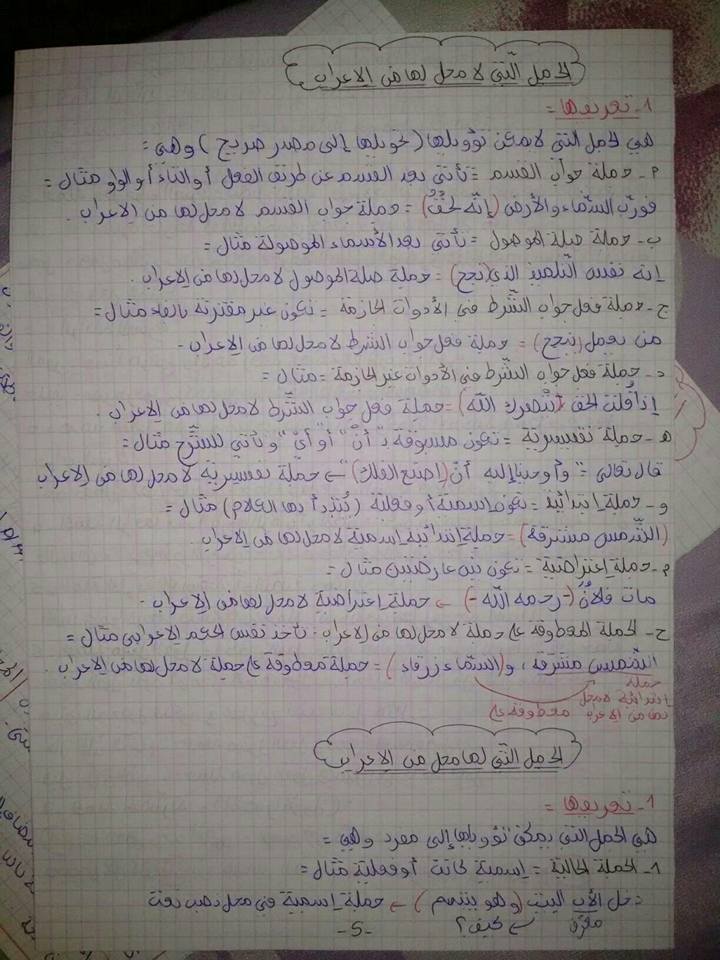 الجمل التّي لا محل لها من الإعراب
1- تعريفها =
هي الجمل التي لا يمكن تؤويلها (تحويلها إلى مصدر صريح) وهي =
م- جملة جواب القسم = تأتي بعد القسم عن طريق الفعل أو التاء أو الواو مثال =
فوربّ السّماء والأرض (إنّه لحقٌّ) = جملة جواب القسم لا محل لها من الإعراب.
ب- جملة صلة الموصول = تأتي بعد الأسماء الموصولة مثال =
إنه نفس التّلميذ الذي (نجح) = جملة صلة الموصول لا محل لها من الإعراب.
ج- جملة فعل جواب الشّرط في الأدوات الجازمة = تكون غير مقترنة بالفاء مثال =
من يعمل (ينجح) = جملة فعل جواب الشرط لا محل لها من الإعراب.
د- جملة فعل جواب الشّرط في الأدوات غير الجازمة = مثال =
إذا قلت الحق (نصرك الله) = جملة فعل جواب الشّرط لا محل لها من الإعراب.
هـ- جملة تفسيريّة = تكون مسبوقة بـ "أنْ" أو "أيْ" وتأتي للشّرح مثال =
قال تعالى = "وأوحينا إليه أنْ (اصنع الفلك)" ← جملة تفسيرية لا محل لها من الإعراب
و- جملة إبتدائية = تكون اسمية أو فعلية (يُبتدأ بها الكلام) مثال =
(الشّمس مشرقة) = جملة إبتدائية إسمية لا محل لها من الإعراب.
م- جملة إعتراضية = تكون بين عارضتين مثال =
مات فلانٌ (-رحمه الله-) ← جملة إعتراضية لا محل لها من الإعراب.
ح- الجملة المعطوفة على جملة لا محل لها من الإعراب. تأخذ نفس الحكم الإعرابي مثال =
الشّمس مشرقة، و(السّماء زرقاء) = جملة معطوفة على جملة لا محل لها من الإعراب.
جملة
إبتدائية لا محل معطوفة على
لها من الإعراب
الجمل التّي لها محل من الإعراب
1- تعريفها =
هي الجمل التي يمكن تؤويلها إلى مفرد وهي =
1- الجملة الحالية = إسمية كانت أو فعلية مثال =
دخل الأب البيت (وهو يبتسم) ← جملة إسمية في محل نصب نعت
معرّف ← كيف؟
-5-